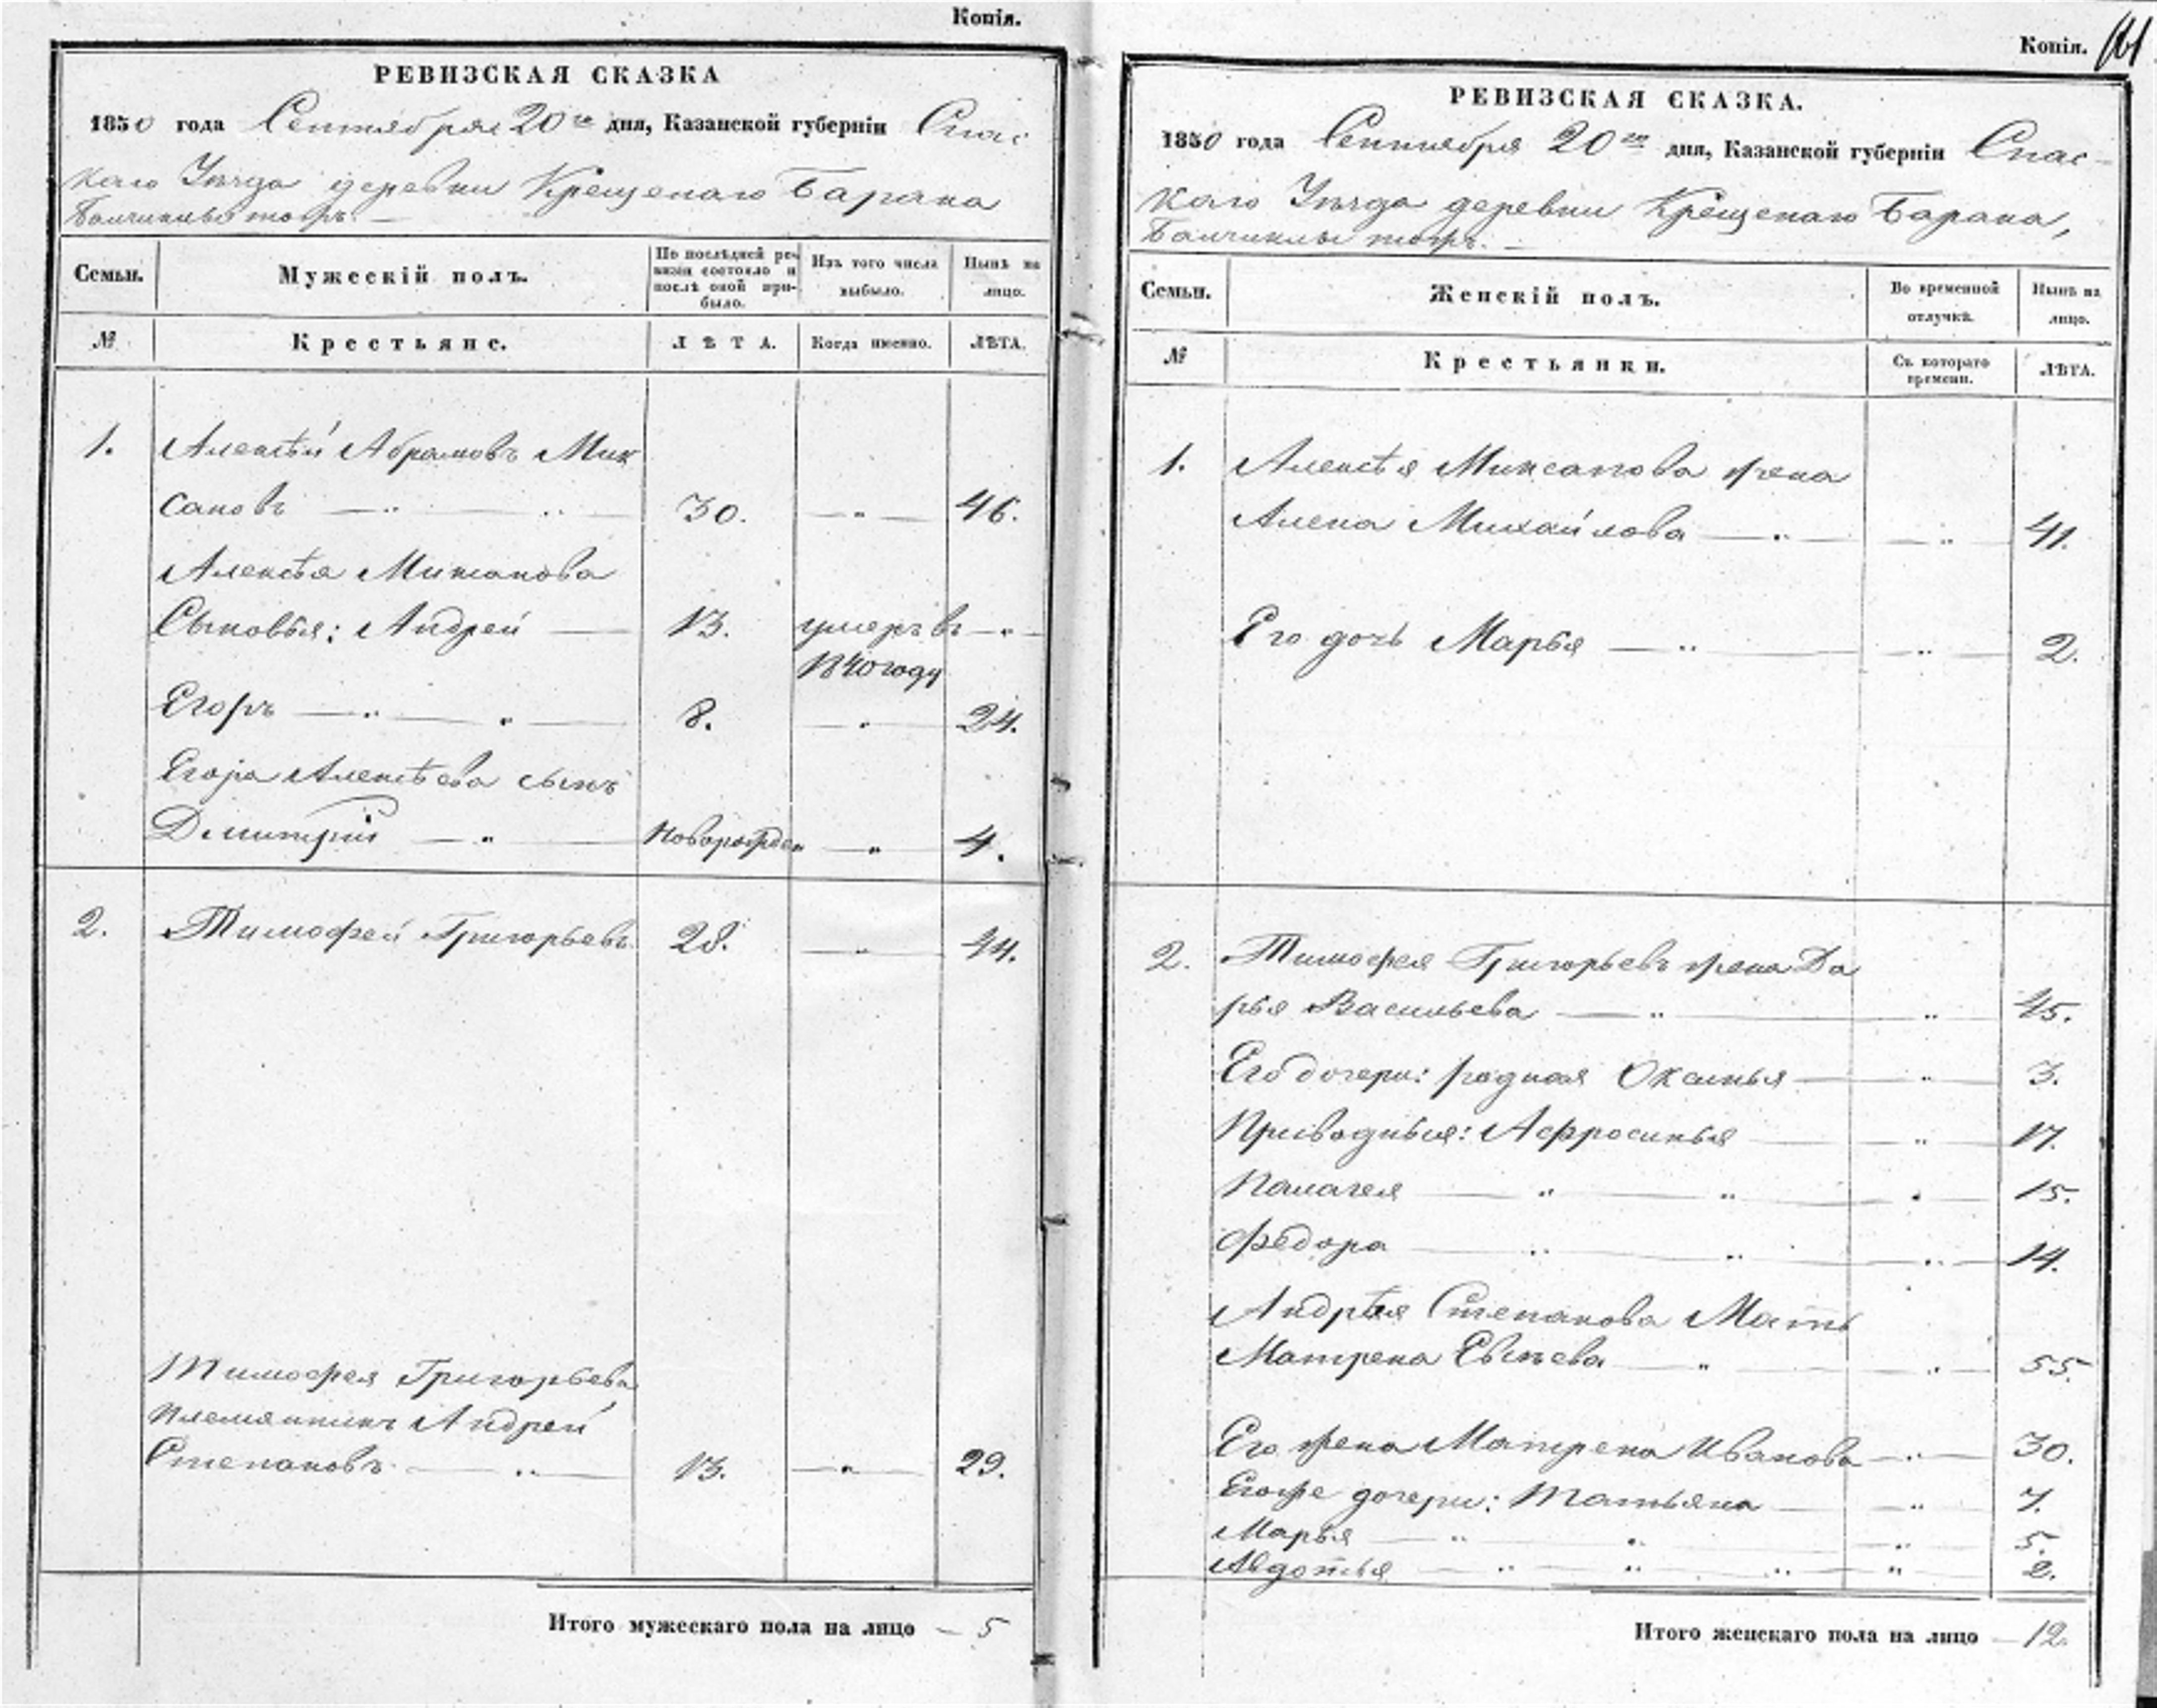 Копія.
РЕВИЗСКАЯ СКАЗКА
1850 года Сентября 20го дня, Казанской губерніи Спас
каго Уѣзда деревни Крещенаго Барана
Балчиклы тожъ.
Семьи.
Мужескій полъ.
По послѣдней ре-
визіи состояло и
послѣ оной при-
было.
Изъ того числа
выбыло.
Нынѣ на
лицо.
№
Крестьяне.
ЛѢТА.
Когда именно.
ЛѢТА.
1. Алексѣй Абрамовъ Мик
сановъ 30. 46.
Алексѣя Миксанова
Сыновья: Андрей 13. умеръ въ
1840 году
Егоръ 8. 24.
Егора Алексѣева сынъ
Дмитрій Новорожден 4.
2. Тимофей Григорьевъ 28. 44.
Тимофея Григорьева
племянникъ Андрей
Степановъ 13. 29.
Итого мужескаго пола на лицо 5
Копія.
РЕВИЗСКАЯ СКАЗКА.
1850 года Сентября 20го дня, Казанской губерніи Спас-
каго Уѣзда деревни Крещенаго Барана,
Балчиклы тожъ.
Семьи.
Женскій полъ.
Во временной
отлучкѣ.
Нынѣ на
лицо.
№
Крестьянки.
Съ котораго
времени.
ЛѢТА.
1. Алексѣя Миксанова жена
Алена Михайлова 41.
Его дочь Марья 2.
2. Тимофея Григорьевъ жена Да
рья Васильева 45.
Его дочери: родная Оксинья 3.
Приводныя: Афросинья 17.
Палагея 15.
Федора 14.
Андрѣя Степанова Мать
Матрена 55.
Его жена Матрена Иванова 30.
Егоже дочери: Татьяна 7.
Марья 5.
Авдотья 2.
Итого женскаго пола на лицо 12.